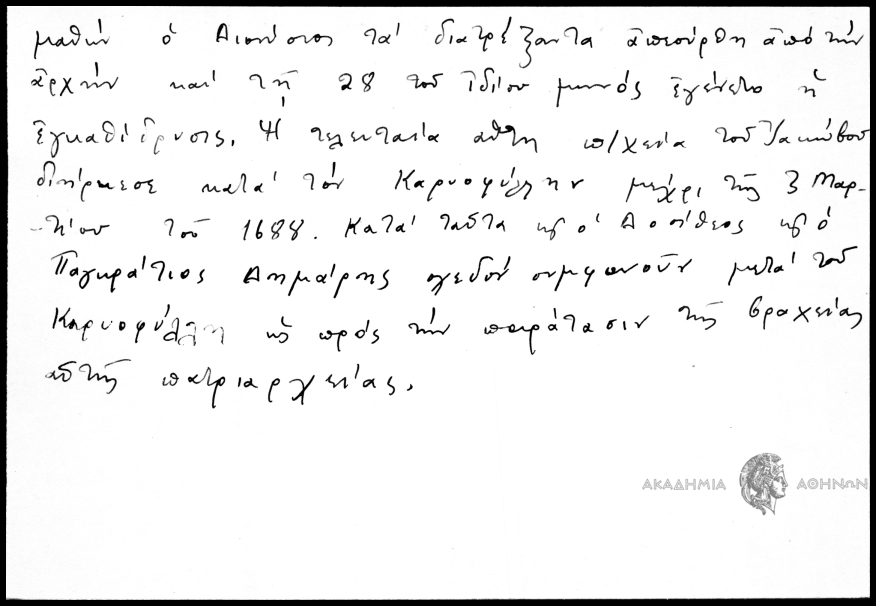 μαθὼν ὁ Διονύσιος τὰ διατρέξαντα ἀπεσύρθη ἀπὸ τὴν
ἀρχὴν καὶ τῇ 28 τοῦ ἰδίου μηνὸς ἐγένετο ἡ
ἐγκαθίδρυσις. Ἡ τελευταία αὕτη π/χεία τοῦ Ἰακώβου
διήρκεσε κατὰ τὸν Καρυοφύλλην μέχρι τῆς 3 Μαρ-
τίου τοῦ 1688. Κατὰ ταῦτα κ ὁ Δοσίθεος κ ὁ
Παγκράτιος Δημάρης σχεδὸν συμφωνοῦν μετὰ τοῦ
Καρυοφύλλη ὡς πρὸς τὴν παράτασιν τῆς βραχείας
αὐτῆς πατριαρχείας.
ΑΚΑΔΗΜΙΑ ΑΘΗΝΩΝ